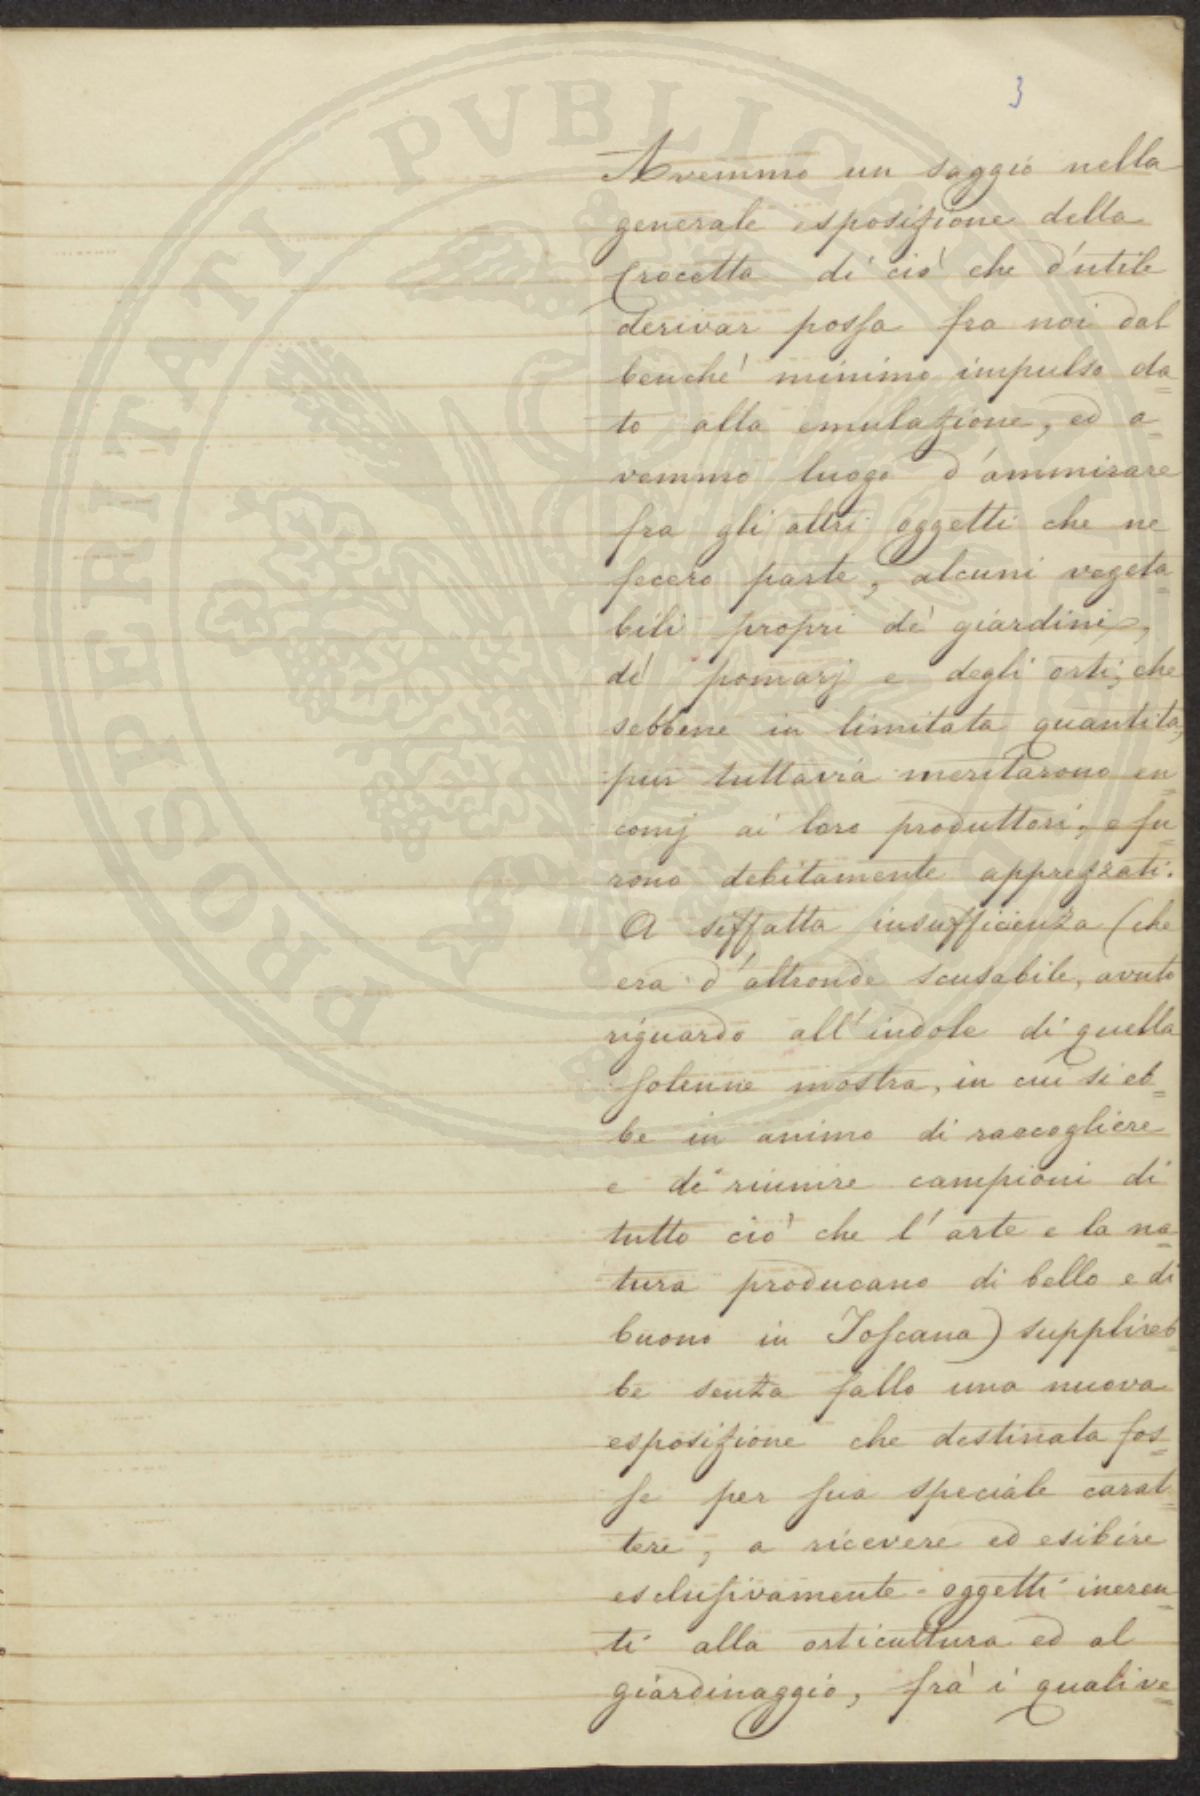 3
Avemmo un saggio nella
generale esposizione della
Crocetta di ciò che d'utile
derivar possa fra noi dal
benchè minimo impulso da=
to alla emulazione, ed a=
vemmo luogo d'ammirare
fra gli altri oggetti che ne
fecero parte, alcuni vegeta=
bili propri de' giardini,
de' pomarj e degli orti, che
sebbene in limitata quantità,
pur tuttavia meritarono en=
comj ai loro produttori, e fu=
rono debitamente apprezzati.
A siffatta insufficienza (che
era d'altronde scusabile, avuto
riguardo all'indole di quella
solenne mostra, in cui si eb=
be in animo di raccogliere
e di riunire campioni di
tutto ciò che l'arte e la na=
tura producano di bello e di
buono in Toscana) supplireb=
be senza fallo una nuova
esposizione che destinata fos=
se per sua speciale carat=
tere, a ricevere ed esibire
esclusivamente oggetti ineren=
ti alla orticultura ed al
giardinaggio, frà i quali ve=
PROSPERITATI PVBLICAE